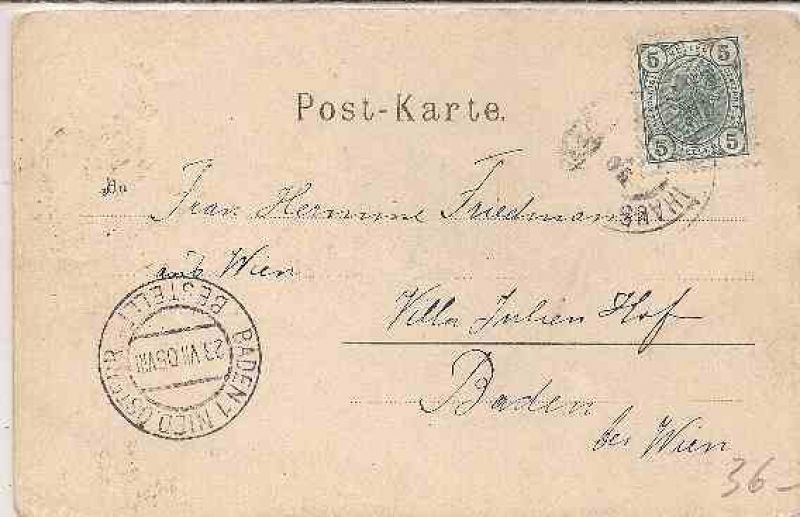 5 5
5 5
Post-Karte.
An
Frau Hermine Friedmann
aus Wien
Villa Julien Hof
Baden
bei Wien
BESTELLT
BADEN 1 NIED. ÖSTERR.
23.VII.05
36-